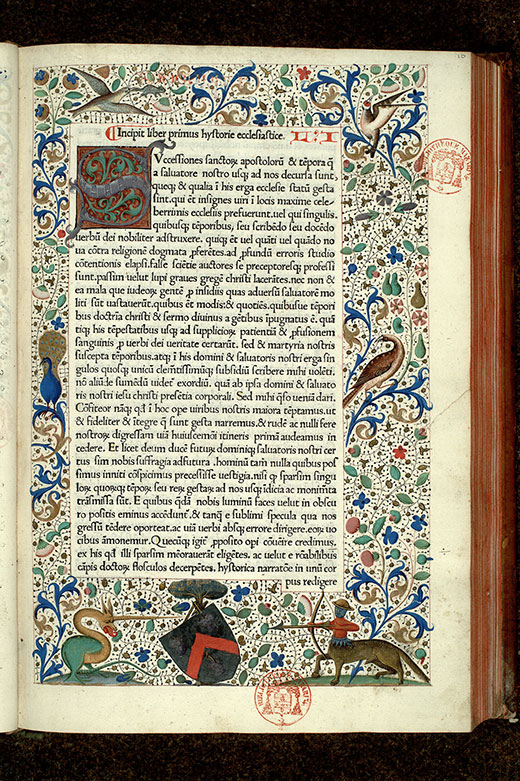 10
Incipit liber primus hystorie ecclesiastice. L I
Successiones sanctoꝝ apostoloꝝ & tēpora q̄
a saluatore nostro usq; ad nos decursa sunt
quoq; & qualia ī his erga ecclesie statū gesta
sint. qui ēt insignes uiri ī locis maxime cele-
berrimis ecclesiis prefuerunt. uel qui singulis
quibusq; tēporibus, seu scribēdo seu docēdo
uerbū dei nobiliter adstruxere. quiq; ēt uel quāti uel quādo no
ua cōtra religionē dogmata ꝓferētes. ad ꝓfundū erroris studio
cōtentionis elapsi. false sciētie auctores se preceptoresq; professi
sunt. passim uelut lupi graues gregē christi lacerātes. nec non &
ea mala que iudeoꝝ gentē ꝓ insidiis quas aduersū saluatorē mo
liti sūt uastauerūt. quibus ēt modis: & quotiēs. quibusue tēpori
bus doctrīa christi & sermo diuinus a gētibus īpugnatus ē. quā
tiq; his tēpestatibus usq; ad suppliciorꝝ patientiā & ꝓfusionem
sanguinis ꝓ uerbi dei ueritate certarūt. sed & martyria nostris
suscepta tēporibus. atq; ī his domini & saluatoris nostri erga sin
gulos quosq; unicū clemētissimūq; subsidiū scribere mihi uolēti.
nō aliūde sumēdū uidetur exordiū. quā ab ipsa domini & saluato
ris nostri iesu christi presētia corporali. Sed mihi q̄so ueniā dari.
Cōfiteor nāq; qd̄ ī hoc ope uiribus nostris maiora tēptamus. ut
& fideliter & ītegre q̄ sunt gesta narremus. & rudē ac nulli fere
nostroꝝ digressam uiā huiuscemōi itineris primā audeamus in
cedere. Et licet deum ducē futuꝝ dominiq; saluatoris nostri cer
tus sim nobis suffragia adfutura. hominū tam̄ nulla quibus pos
simus inniti cōspicimus precessisse uestigia. nisi q̄ sparsim singu
loꝝ quoꝝq; tēpoꝝ seu reꝝ gestaꝝ ad nos usq; īdicia ac monimēta
trāsmissa sūt. E quibus q̄dā nobis luminū faces uelut in obscu
ro positis eminus accēdunt. & tanq̄ e sublimi specula qua nos
gressū tēdere oporteat. ac uiā uerbi absq; errore dirigere. eoꝝ uo
cibus āmonemur. Quecūq; igit̄ ꝓposito opi cōuēire credimus.
ex his qd̄ illi sparsim mēorauerāt eligētes. ac uelut e rōabilibus
cāpis doctoꝝ flosculos decerpētes. hystorica narratōe in unū cor
pus redigere